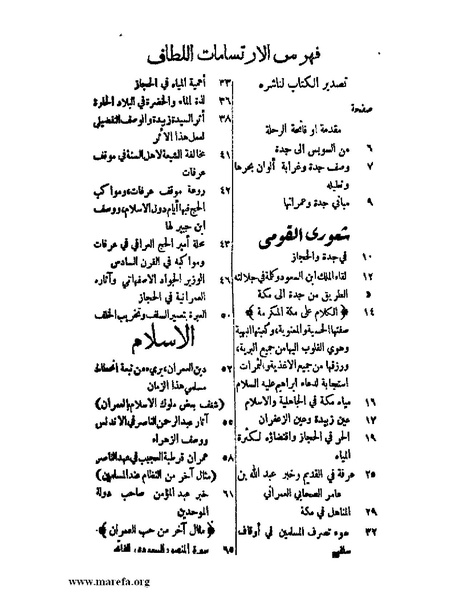 فهرس الارتسامات اللطاف
تصدير الكتاب لناشره
صفحة
مقدمة او فاتحة الرحلة
٦ من السويس الى جدة
٧ وصف جدة وغرابة ألوان بحرها
وتعليله
٩ مباني جدة وعمرانها
شعوري القومي
١٠ في جدة والحجاز
١٢ لقاء الملك ابن السعود وكلمة في جلالته
« الطريق من جدة الى مكة
١٤ ﴿ الكلام على مكة المكرمة ﴾
صفتها الحسية والمعنوية، وكعبتها البهية
وهوي القلوب اليها من جميع البرية،
ورزقها من جميع الاغذية والثمرات
استجابة لدعاء ابراهيم عليه السلام
١٦ مياه مكة في الجاهلية والاسلام
١٧ عين زبيدة وعين الزعفران
١٩ الحر في الحجاز واقتضاؤه لكثرة
المياه
٢٥ عرفة في القديم وخبر عبد الله بن
عامر الصحابي العمراني
٢٩ المناهل في مكة
٣٢ سوء تصرف المسلمين في أوقاف
سلفهم
٣٣ أهمية المياه في الحجاز
٣٦ لذة الماء والخضرة في البلاد الحارة
٣٨ أثر السيدة زبيدة والوصف التفصيلي
لعمل هذا الأثر
٤١ مخالفة الشيعة لاهل السنة في موقف
عرفات
٤٢ روعة موقف عرفات، ومواكب
الحج فيها أيام دول الاسلام، ووصف
ابن جبير لها
٤٣ محلة أمير الحج العراقي في عرفات
ومواكبه في القرن السادس
٤٦ الوزير الجواد الاصفهاني وآثاره
العمرانية في الحجاز
٥٠ العبرة بتعمير السلف وتخريب الخلف
الاسلام
٥٢ دين العمران، بريء من تبعة انحطاط
مسلمي هذا الزمان
(شغف بعض ملوك الاسلام بالعمران)
٥٥ آثار عبد الرحمن الناصر في الاندلس
ووصف الزهراء
٥٨ عمران قرطبة العجيب في عهد الناصر
(مثال آخر من النظام عند المسلمين)
٦١ خبر عبد المؤمن صاحب دولة
الموحدين
﴿ مثال آخر من حب العمران ﴾
٦٥ المنصور السعدي
www.marefa.org